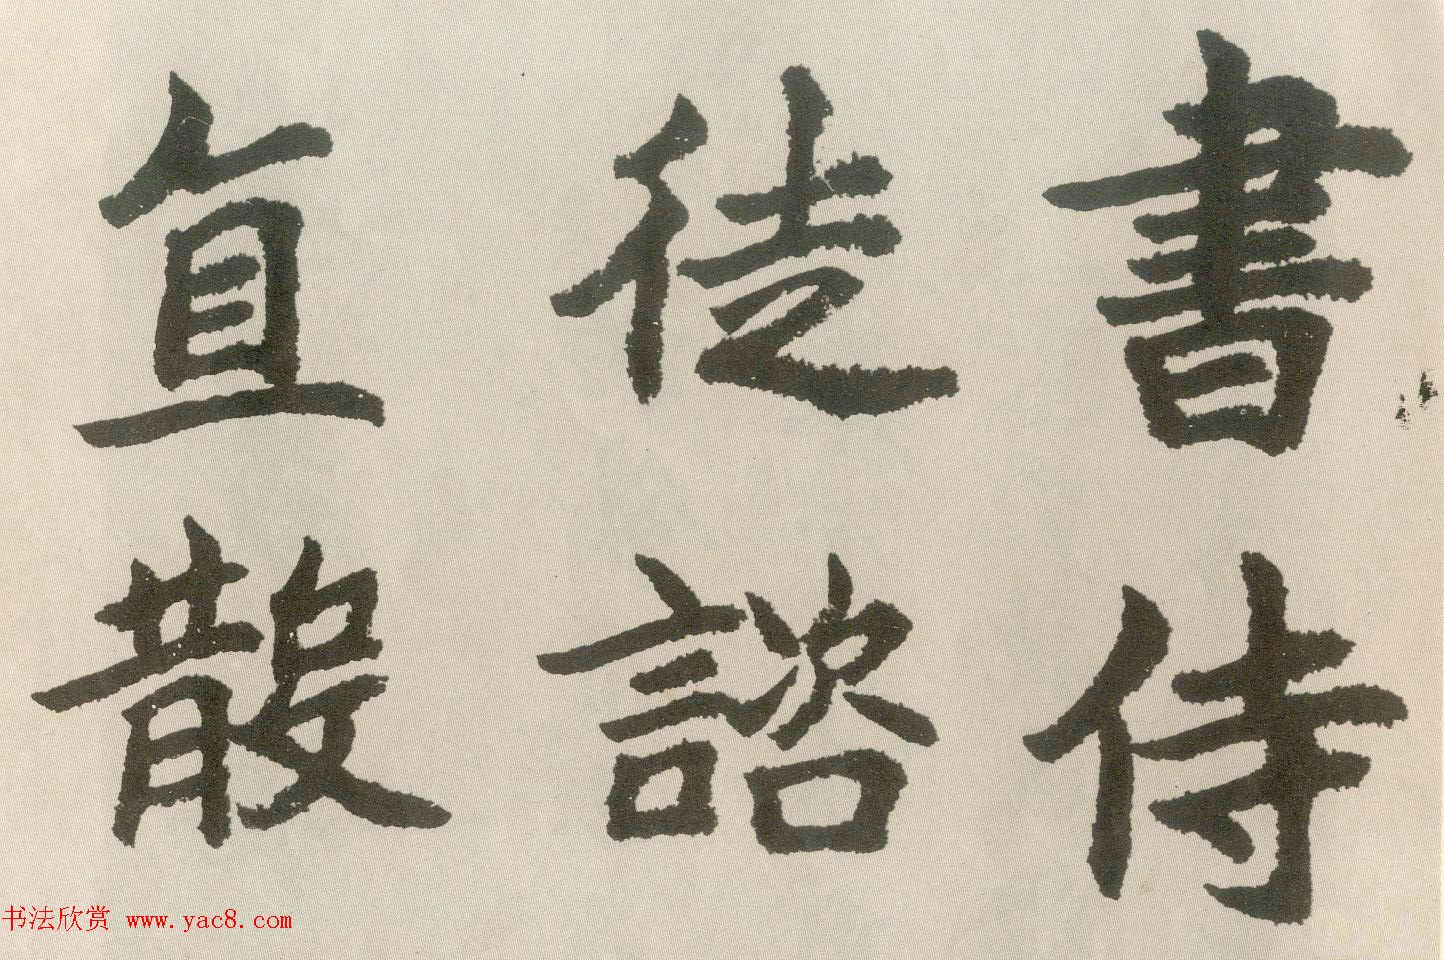 書侍
徙諮
直散
书法欣赏 www.yac8.com